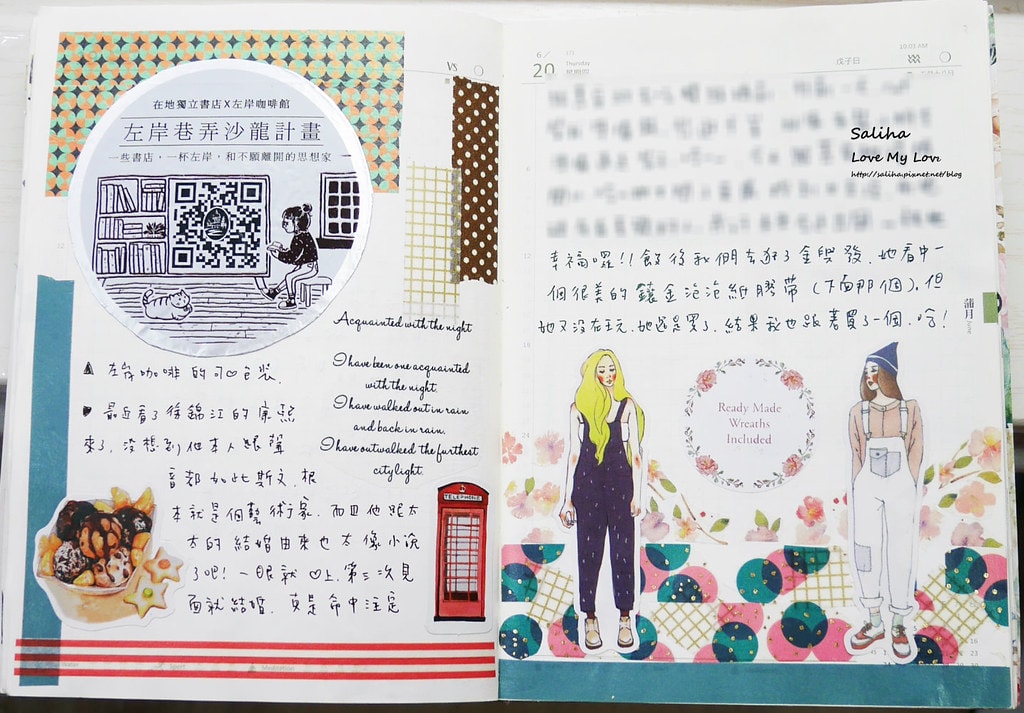 在地獨立書店X左岸咖啡館
左岸巷弄沙龍計畫
一些書店，一杯左岸，和不願離開的思想家
Acquainted with the night
I have been one acquainted
with the night.
I have walked out in rain
and back in rain.
I have outwalked the furthest
city light.
左岸咖啡的可愛包裝.
最近看了徐錦江的康熙
來了,沒想到他本人跟聲
音都如此斯文,根
本就是個藝術家,而且他跟太
太的結婚由來也太像小說
了吧!一眼就♡上,第三次見
面就結婚,真是命中注定
TELEPHONE
VS
6/
20
171
Thursday
星期四
戊子日
Saliha
Love My Love
http://saliha.pixnet.net/blog
幸福喔!!飯後我們去逛了金興發,她看中一
個很美的鑲金泡泡紙膠帶(下面那個),但
她又沒在玩,她還是買了,結果我也跟著買了一個,哈!
蒲月
June
Ready Made
Wreaths
Included